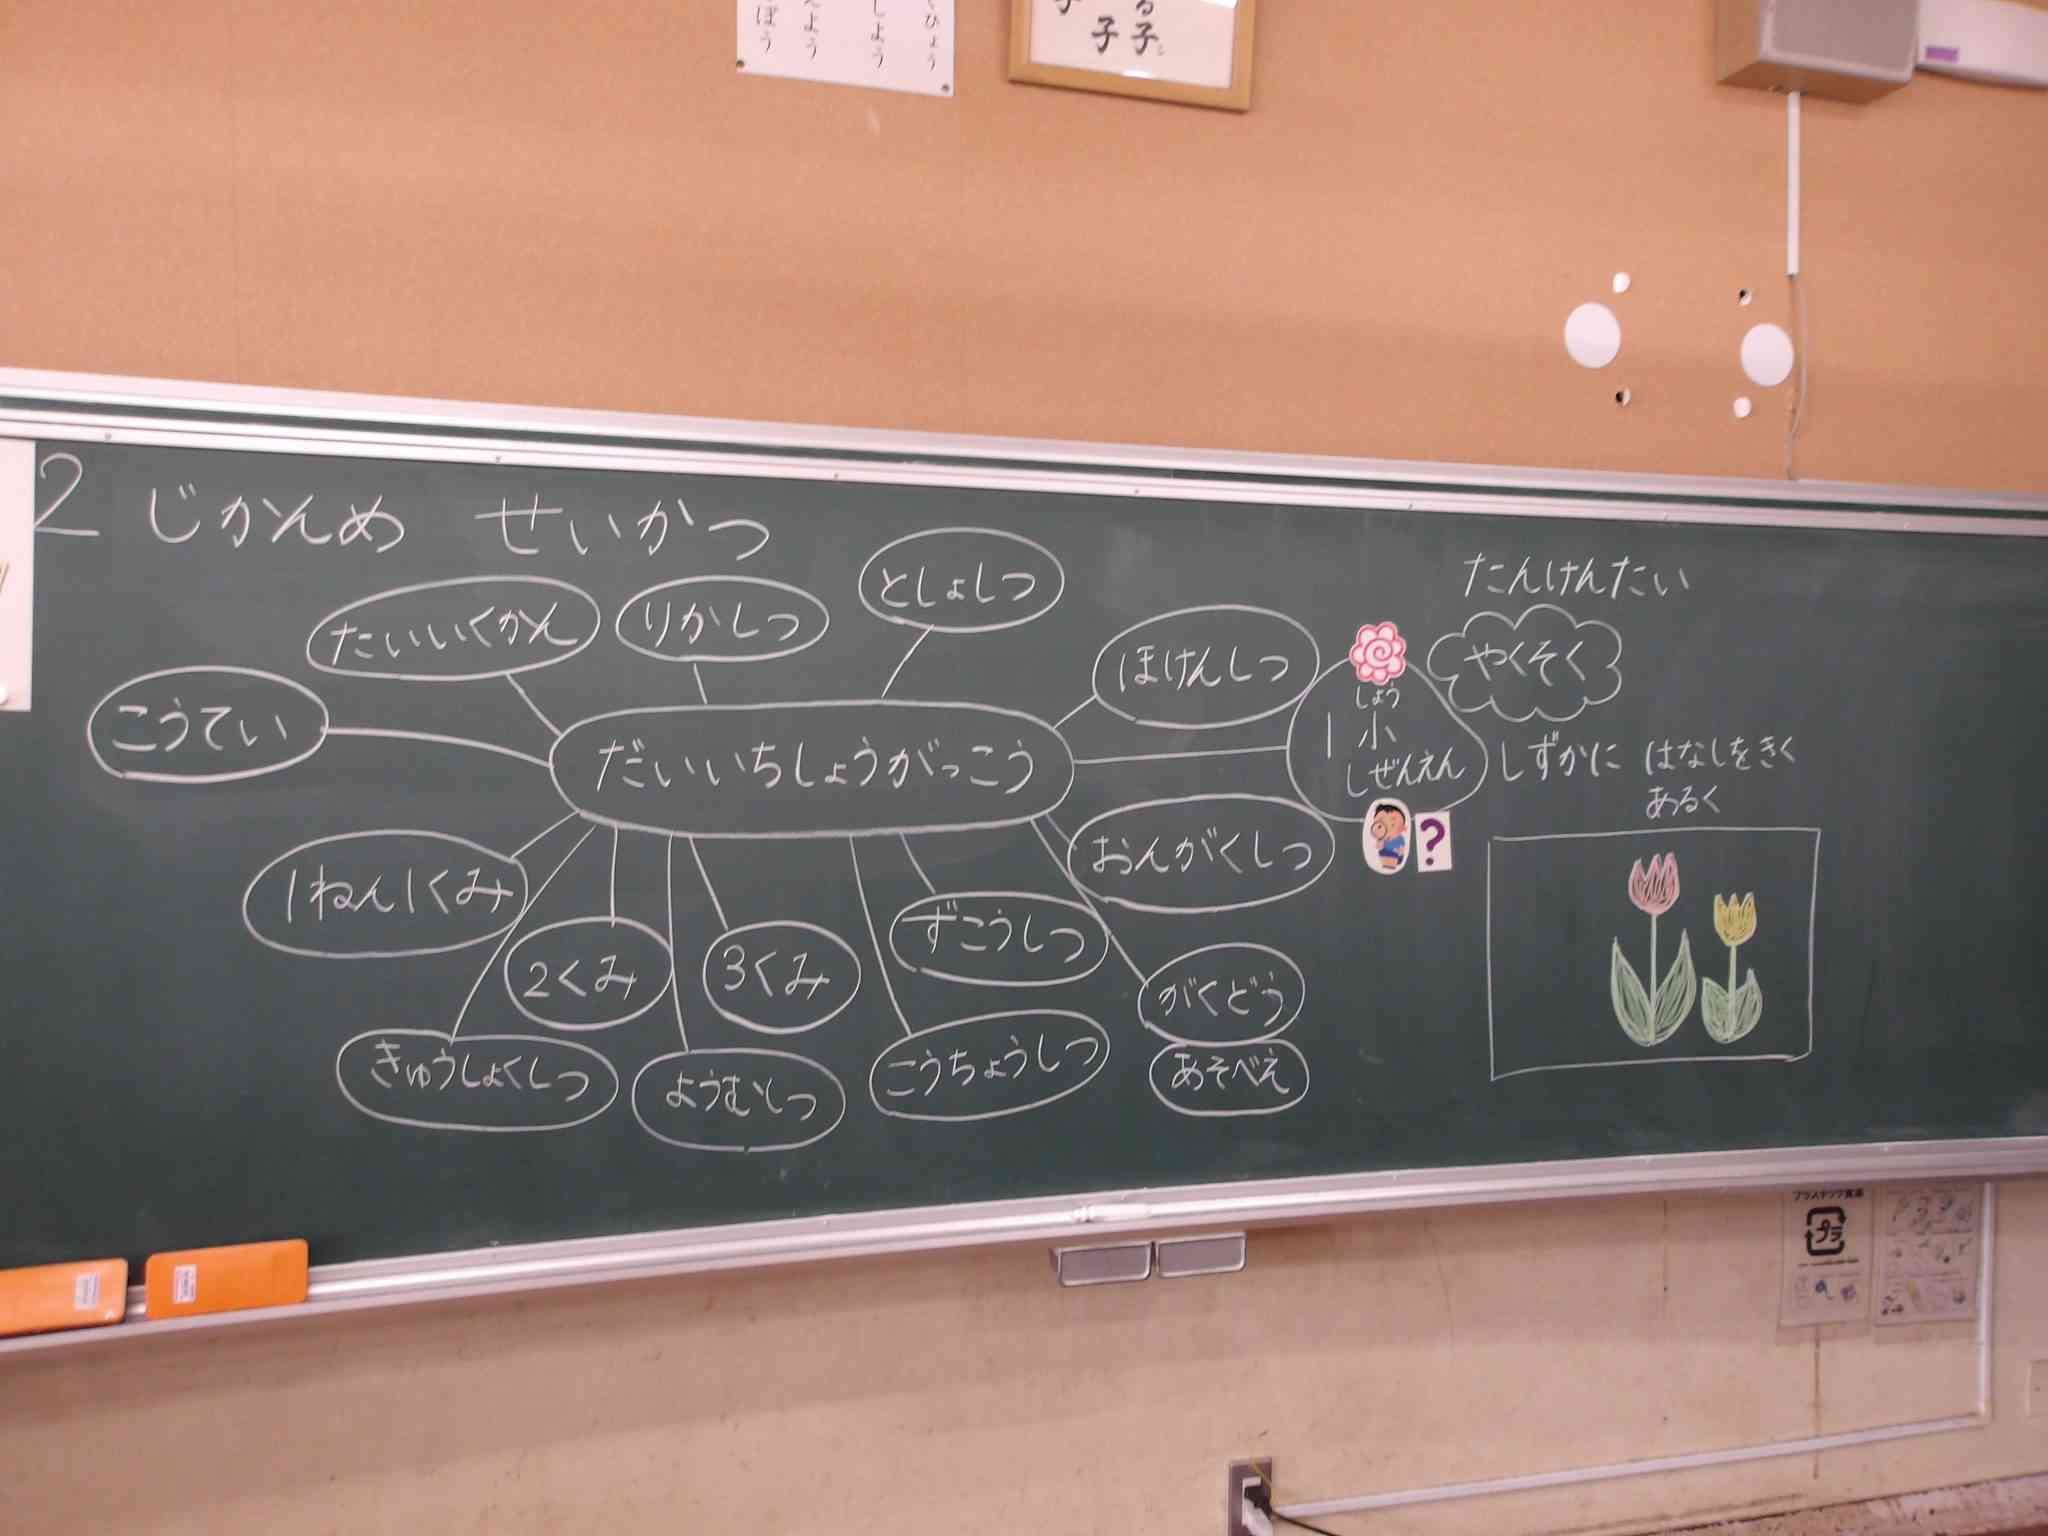 2 じかんめ せいかつ
たいいくかん
りかしつ
としょしつ
ほけんしつ
こうてい
だいいちしょうがっこう
しょう
1 小
しぜんえん
たんけんたい
やくそく
しずかに はなしをきく
あるく
?
1ねん1くみ
2くみ
3くみ
ずこうしつ
おんがくしつ
がくどう
あそべえ
きゅうしょくしつ
ようむしつ
こうちょうしつ
子
子
プラ